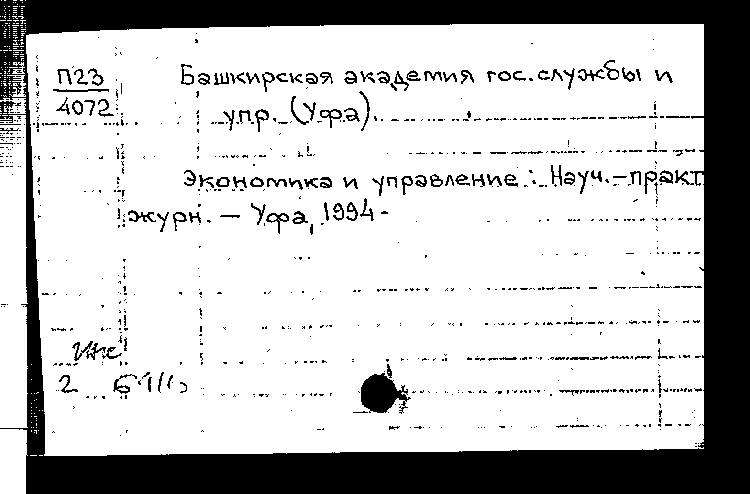 П23
4072
Башкирская академия гос. службы и
упр. (Уфа).
Экономика и управление : Науч.-практ
журн. - Уфа, 1994-
2